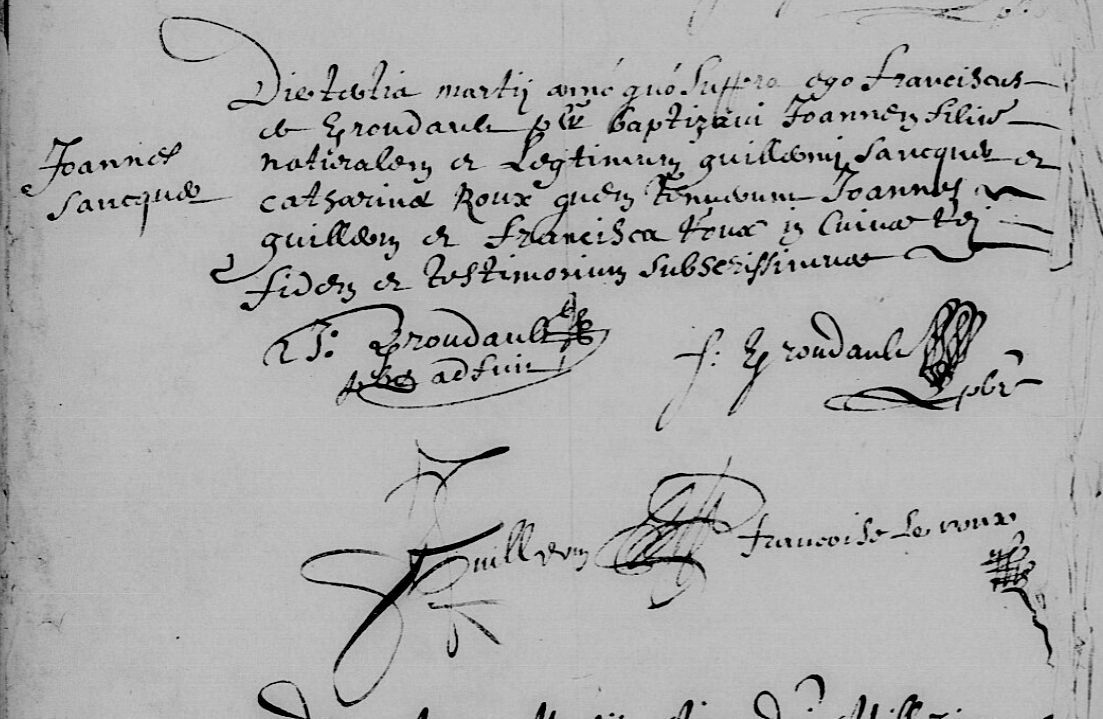 Joannes
Sancquer
Die tertia martij anno quo supra ego franciscus
et Grondault pbr baptizavi Joannem filiu
naturalem et Legitimum guillermi Sancquer et
catharinæ Roux quem tenuerunt Joannes
guillerm et francisca roux in cuius rei
fidem et testimonium subscrissimus
J: Grondault
adfui
f: Grondault
pbr
Guillerm
francoise Le roux